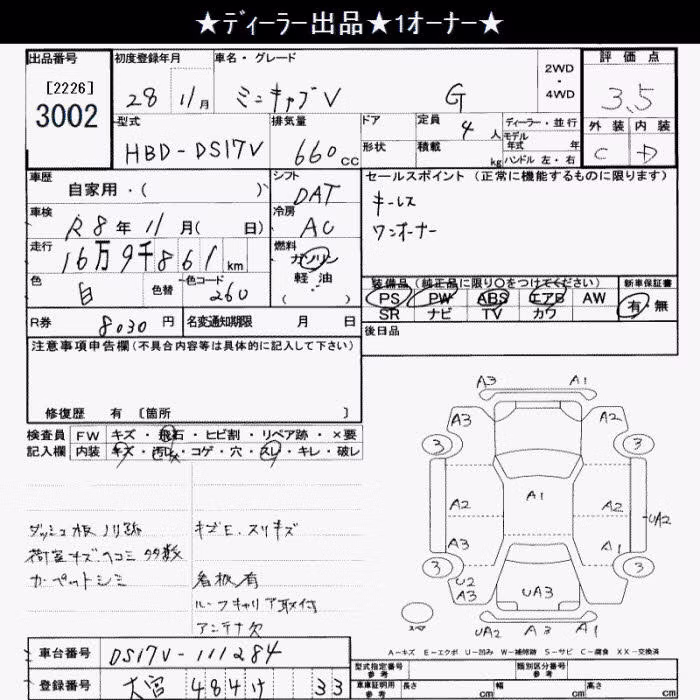 ★ディーラー出品★1オーナー★
出品番号
[2226]
3002
初度登録年月
28 11月
車名・グレード
ミニキャブV G
2WD
・
4WD
評価点
3.5
外装 内装
C D
型式
HBD-DS17V
排気量
660cc
ドア
形状
定員 4人
積載 kg
ディーラー・並行
モデル年式 年
ハンドル 左・右
車歴
自家用・( )
車検
R8年11月( 日)
走行
16万9千861km
色
白
色替
色コード
260
シフト
DAT
冷房
AC
燃料
ガソリン
軽油
( )
セールスポイント (正常に機能するものに限ります)
キーレス
ワンオーナー
装備品(純正品に限り○をつけてください)
PS PW ABS エアB AW
SR ナビ TV カワ
新車保証書
有・無
後日品
R券 8030円
名変通知期限 月 日
注意事項申告欄(不具合内容等は具体的に記入して下さい)
修復歴 有 〔箇所 〕
検査員
記入欄
FW キズ・飛石・ヒビ割・リペア跡・×要
内装 キズ・汚レ・コゲ・穴・スレ・キレ・破レ
ダッシュ板ノリ跡
荷室キズヘコミ多数
カーペットシミ
キズE、スリキズ
看板有
ルーフキャリア取付
アンテナ欠
A3 A1
A3 A2
3 3
A2 A1 A2 UA2
A3 A1
3 3
U2
A3
UA3
スペア
UA2 A3 A1
A-キズ E-エクボ U-凹み W-補修跡 S-サビ C-腐食 XX-交換済
車台番号 DS17V-111284
登録番号 大宮 484け 33
型式指定番号
参考
類別区分番号
参考
車庫証明用
参考
長さ cm 幅 cm 高さ cm